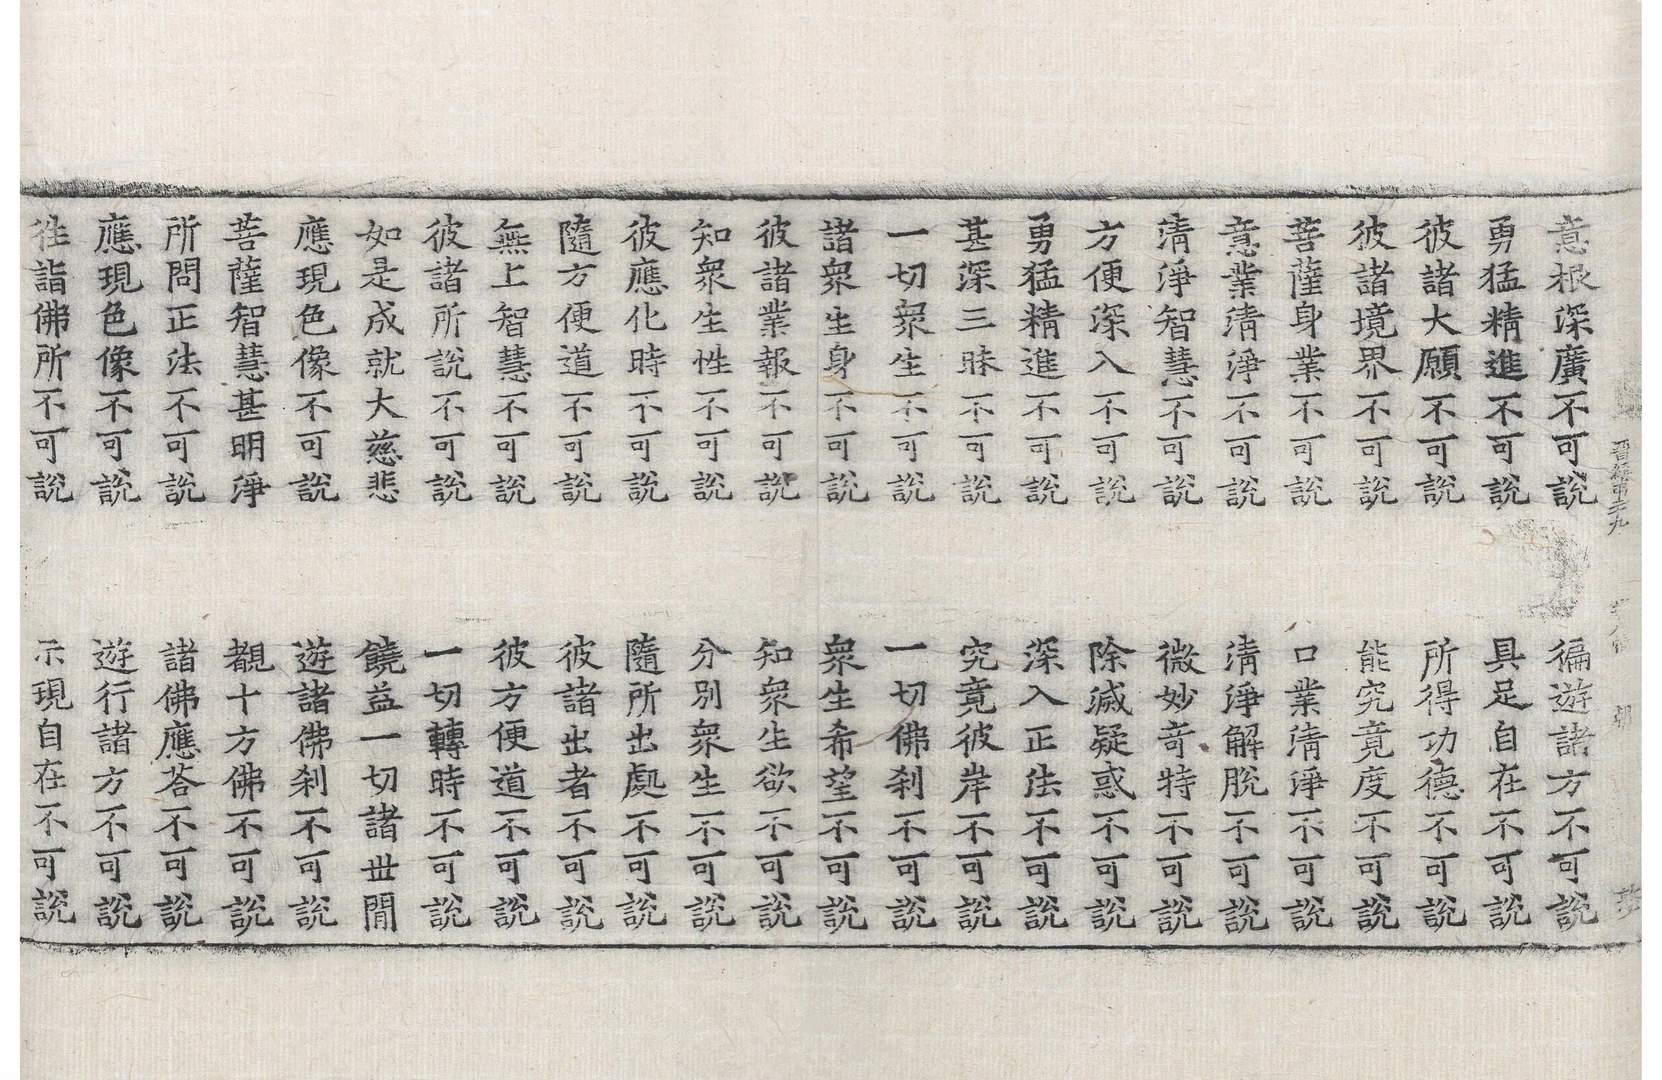 意根深廣不可說　徧遊諸方不可說
勇猛精進不可說　具足自在不可說
彼諸大願不可說　所得功德不可說
彼諸境界不可說　能究竟度不可說
菩薩身業不可說　口業清淨不可說
意業清淨不可說　清淨解脫不可說
清淨智慧不可說　微妙奇特不可說
方便深入不可說　除滅疑惑不可說
勇猛精進不可說　深入正法不可說
甚深三昧不可說　究竟彼岸不可說
一切衆生不可說　一切佛刹不可說
諸衆生身不可說　衆生希望不可說
彼諸業報不可說　知衆生欲不可說
知衆生性不可說　分別衆生不可說
彼應化時不可說　隨所出處不可說
隨方便道不可說　彼諸出者不可說
無上智慧不可說　彼方便道不可說
彼諸所說不可說　一切轉時不可說
如是成就大慈悲　饒益一切諸世間
應現色像不可說　遊諸佛刹不可說
菩薩智慧甚明淨　觀十方佛不可說
所問正法不可說　諸佛應荅不可說
應現色像不可說　遊行諸方不可說
往詣佛所不可說　示現自在不可說